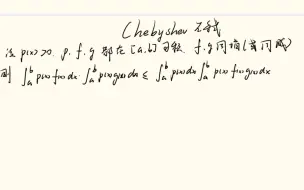 Chebyshev 不等式
设 p(x)≥0. p. f. g 都在 [a.b] 可积, f. g 同增(或同减)
则 ∫ₐᵇ p(x) f(x) dx · ∫ₐᵇ p(x) g(x) dx ≤ ∫ₐᵇ p(x) dx ∫ₐᵇ p(x) f(x) g(x) dx